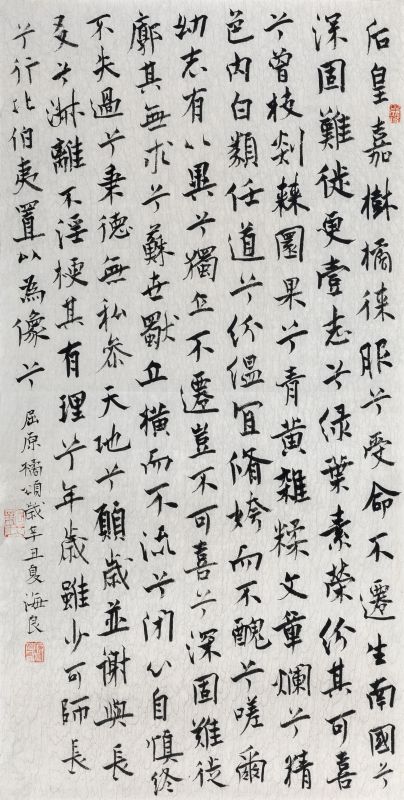 后皇嘉樹橘徕服兮受命不遷生南國兮
深固難徙更壹志兮绿葉素榮纷其可喜
兮曾枝剡棘圜果兮青黄雜糅文章爛兮精
色内白類任道兮纷緼宜脩姱而不醜兮嗟爾
幼志有以異兮獨立不遷豈不可喜兮深固難徙
廓其無求兮蘇世獨立横而不流兮闭心自慎终
不失過兮秉德無私参天地兮願歲並謝與長
友兮淑離不淫梗其有理兮年歲雖少可師長
兮行比伯夷置以為像兮
屈原橘頌歲辛丑夏海良